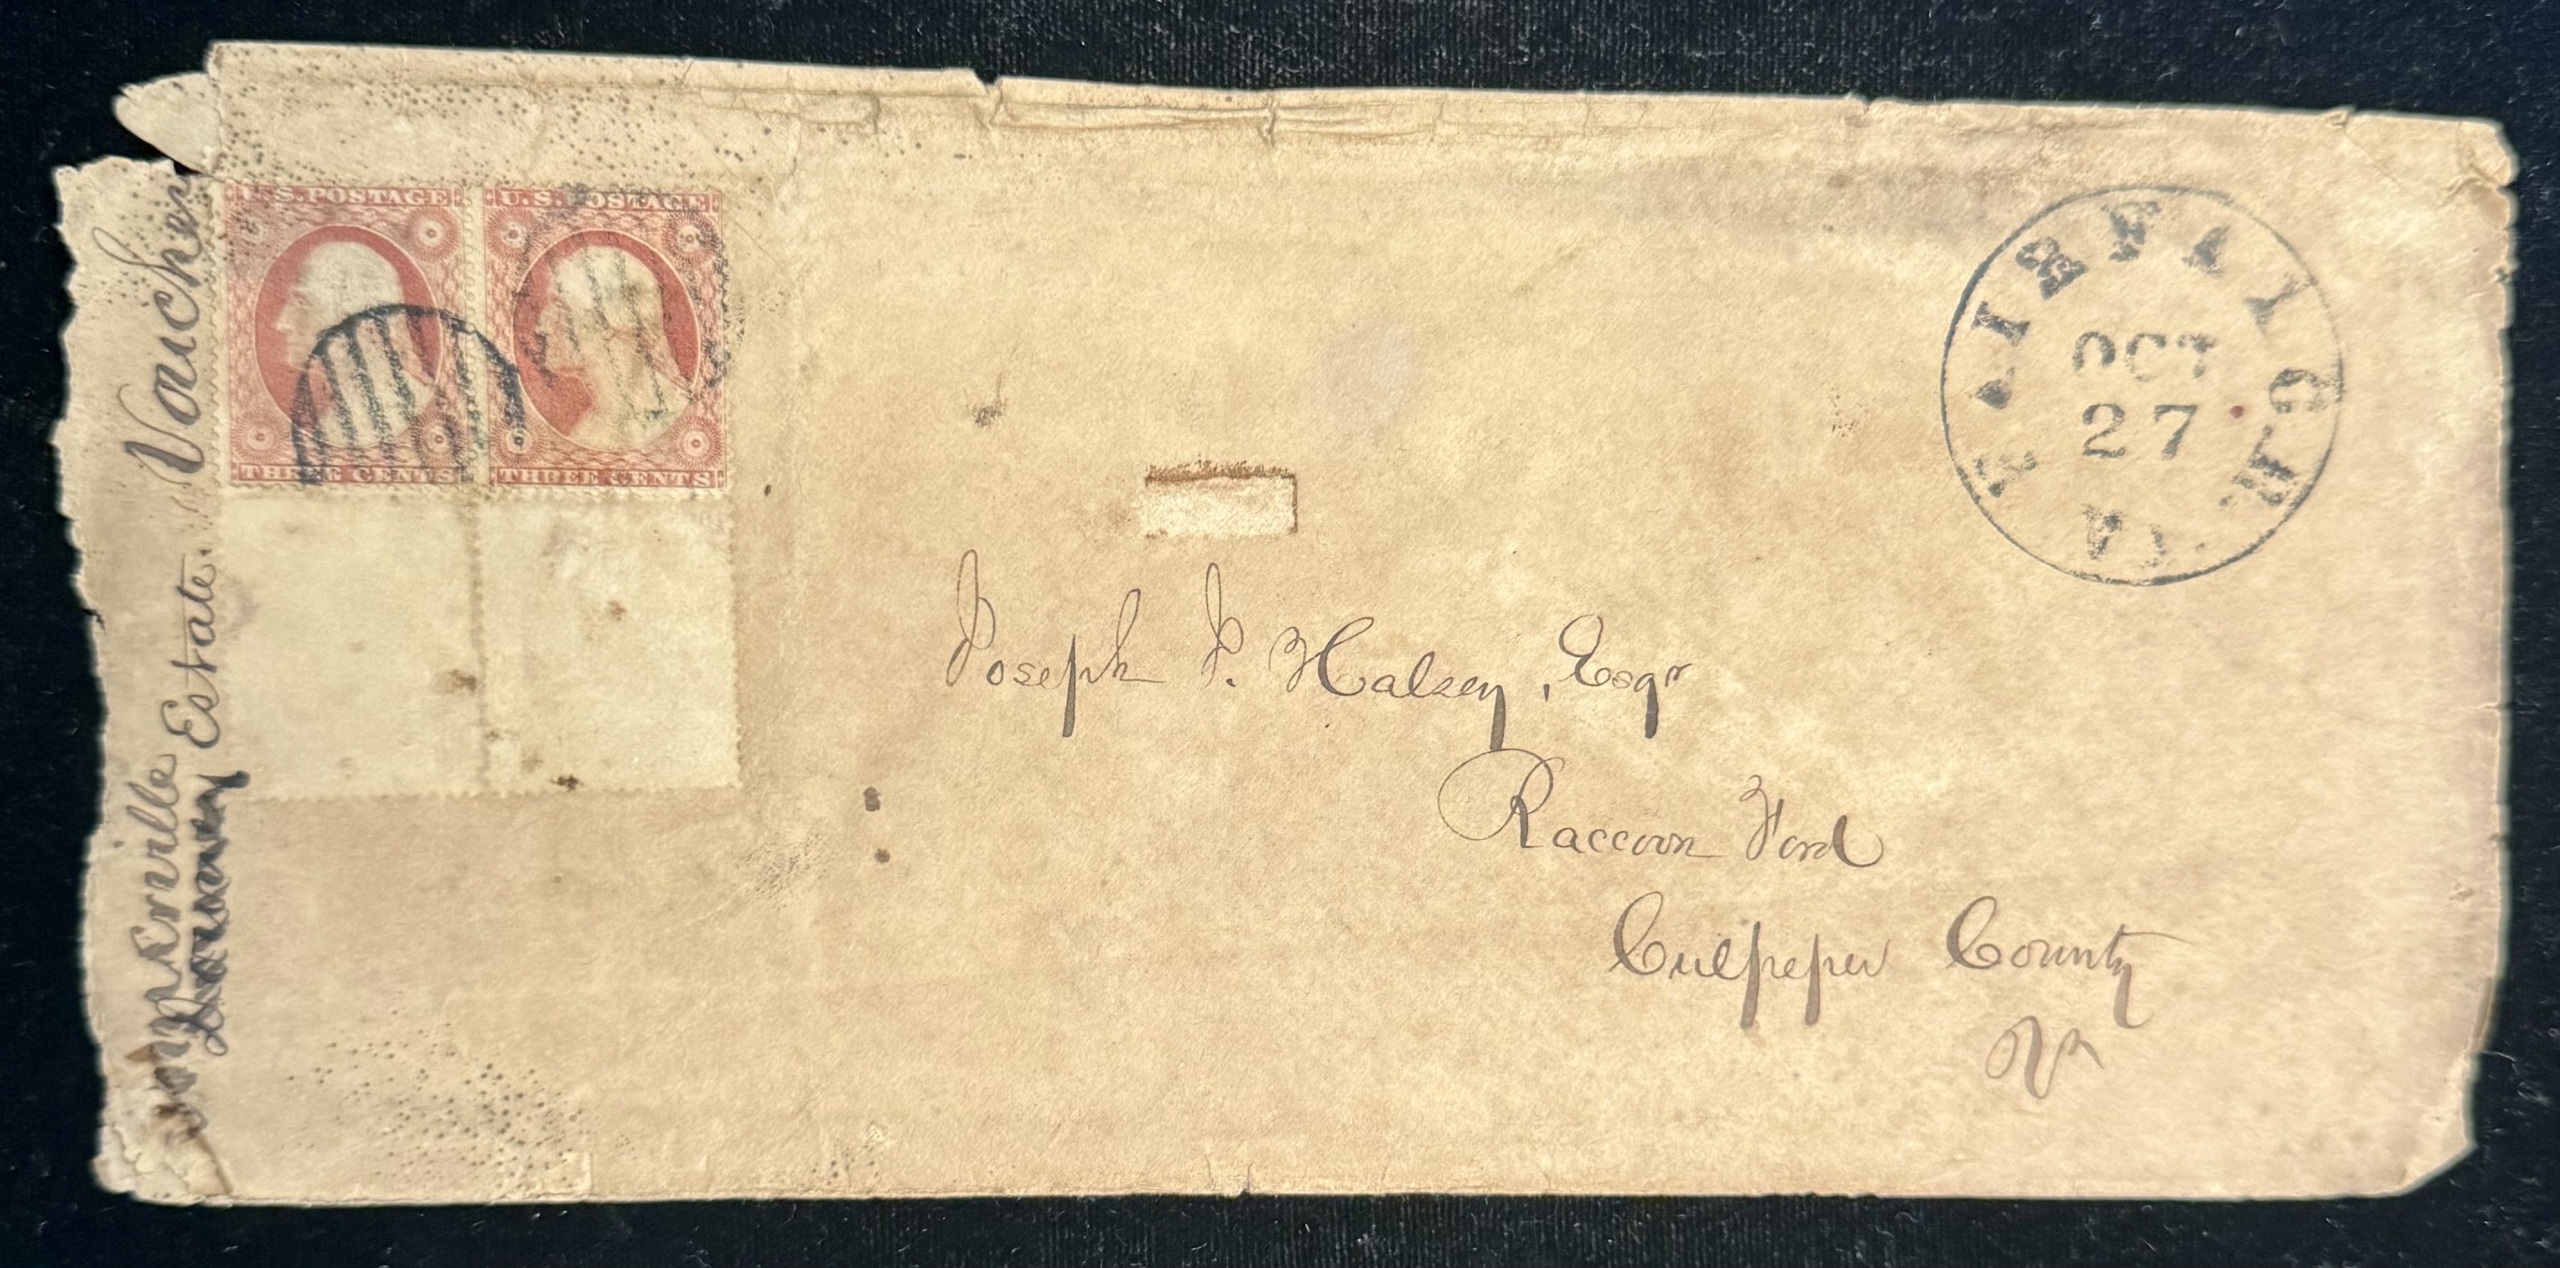 Vouchers
Estate.
U.S. POSTAGE
THREE CENTS
U.S. POSTAGE
THREE CENTS
OCT
27
VA
Joseph J. Halsey, Esqr
Raccoon Ford
Culpeper County
Va